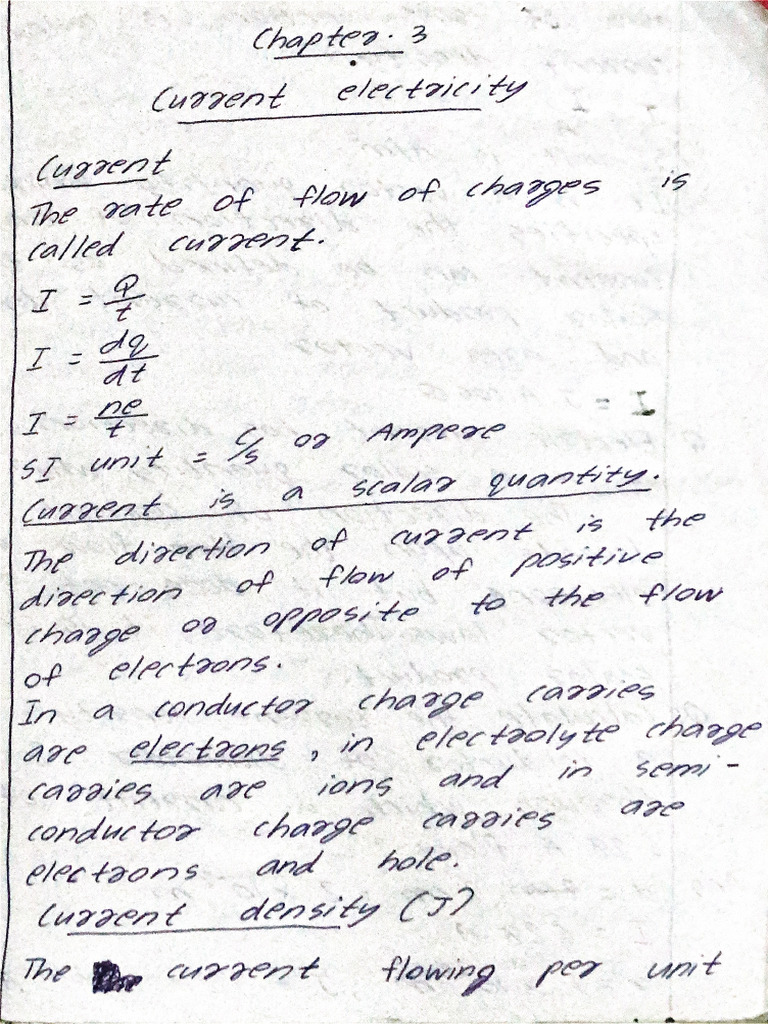 Chapter. 3
Current electricity
Current
The rate of flow of charges is
called current.
I = Q/t
I = dq/dt
I = ne/t
SI unit = C/s or Ampere
Current is a scalar quantity.
The direction of current is the
direction of flow of positive
charge or opposite to the flow
of electrons.
In a conductor charge carries
are electrons, in electrolyte charge
carries are ions and in semi-
conductor charge carries are
electrons and hole.
Current density (J)
The current flowing per unit